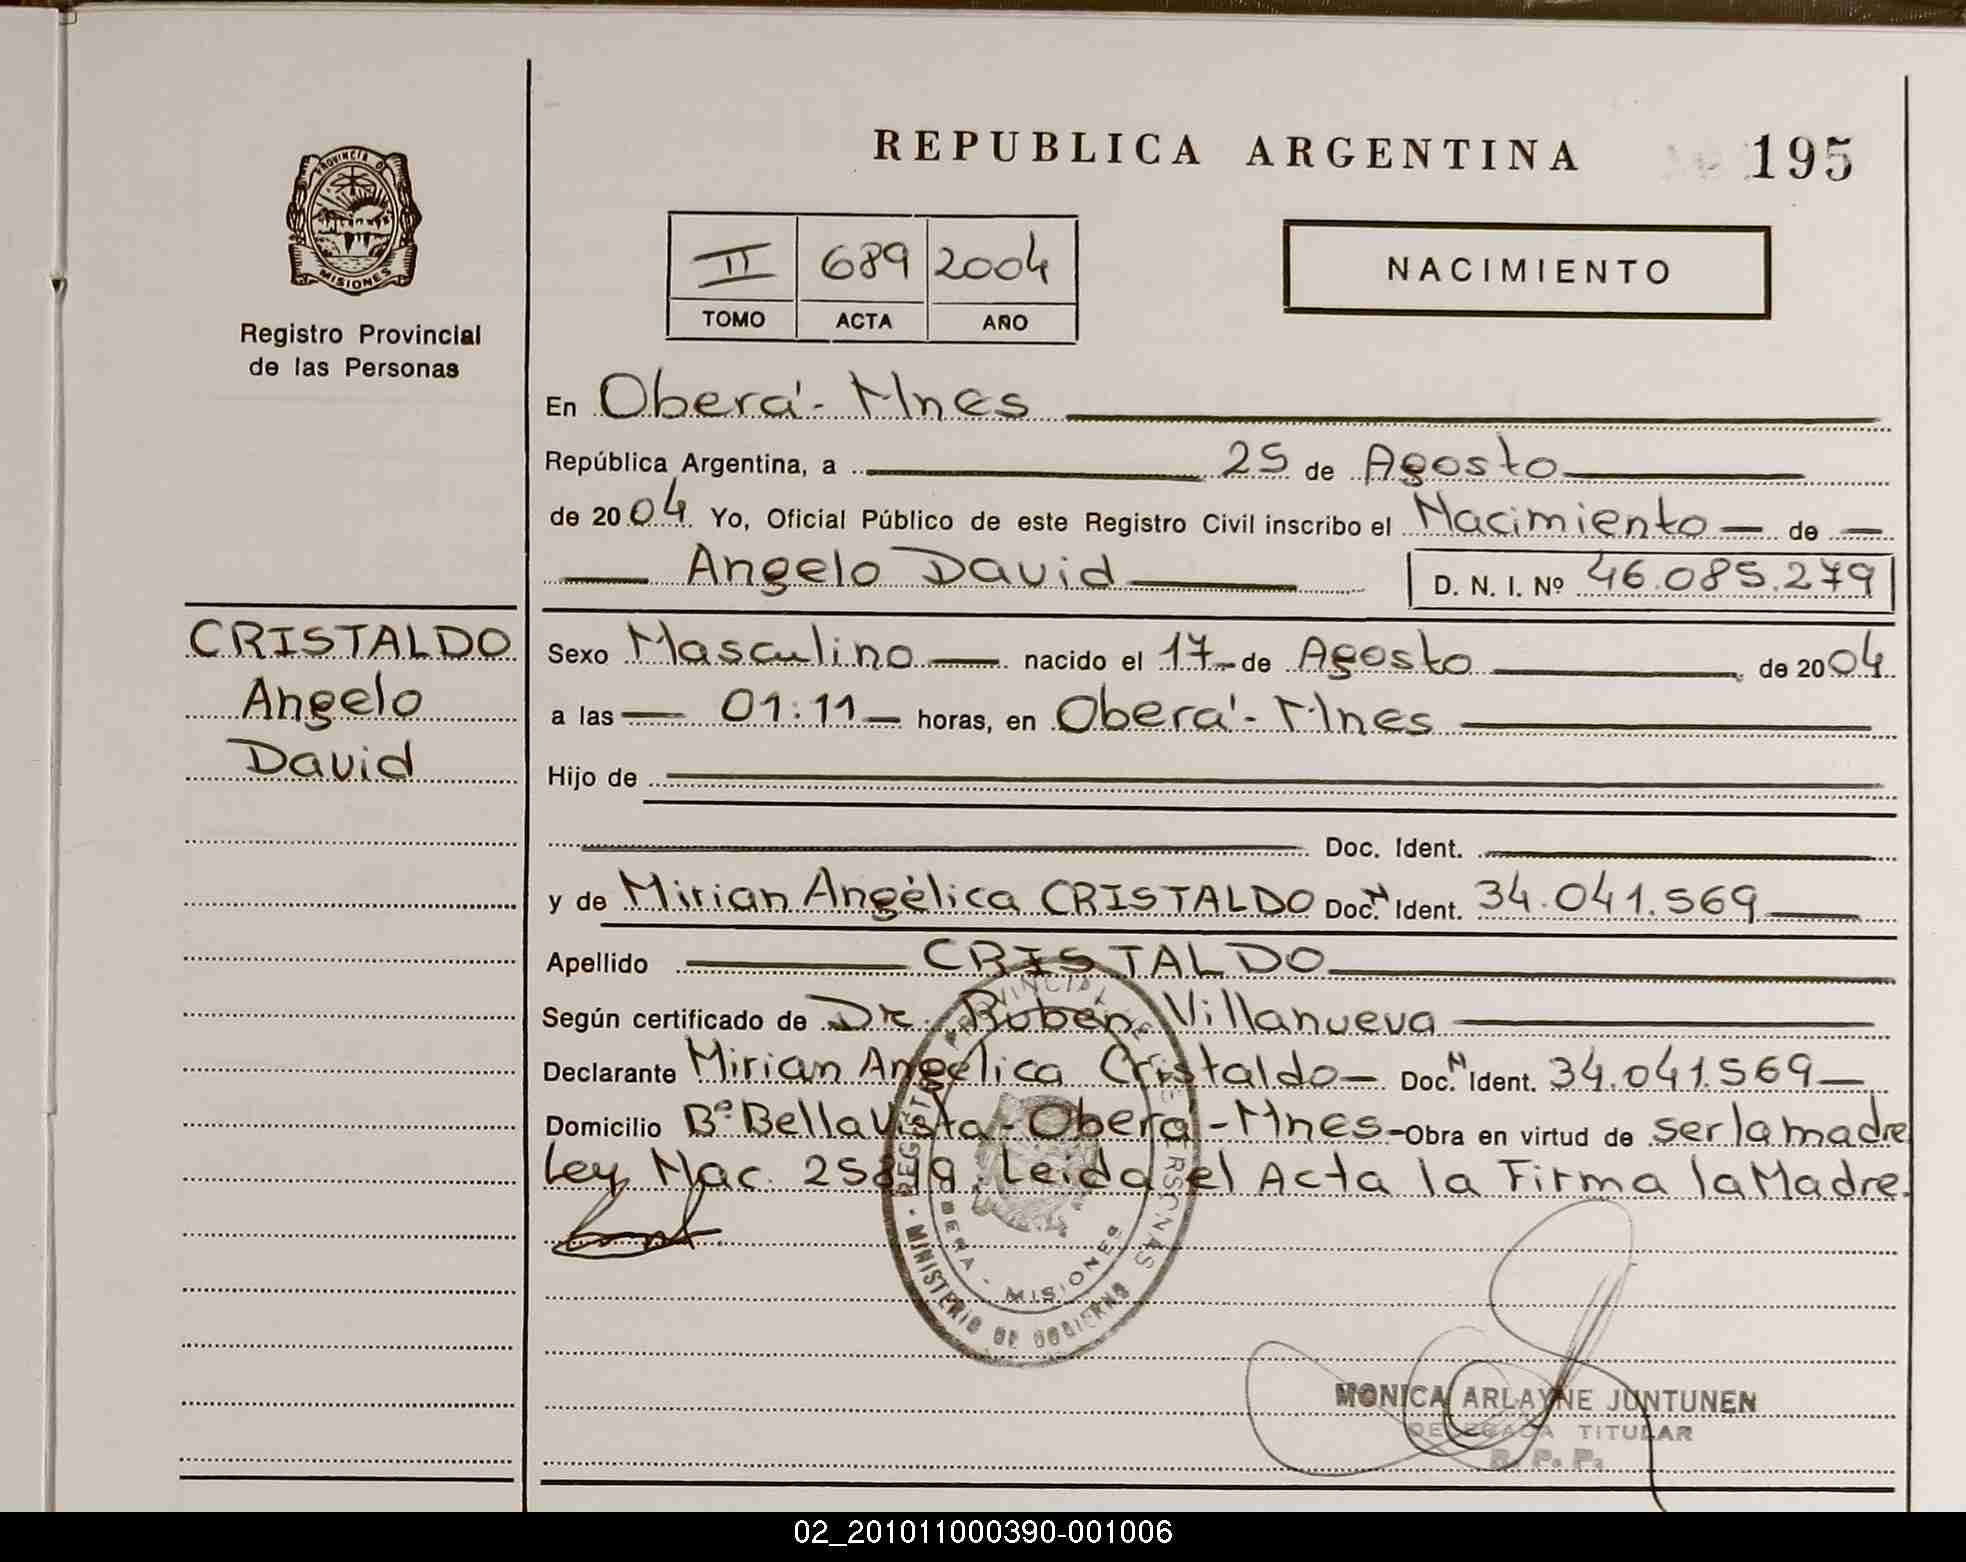 REPUBLICA ARGENTINA
195
PROVINCIA DE
MISIONES
Registro Provincial
de las Personas
II 689 2004
TOMO ACTA AÑO
NACIMIENTO
En Oberá - Mnes
República Argentina, a 25 de Agosto
de 2004 Yo, Oficial Público de este Registro Civil inscribo el Nacimiento de
Angelo David
D. N. I. Nº 46.085.279
CRISTALDO
Angelo
David
Sexo Masculino nacido el 17 de Agosto de 2004
a las 01:11 horas, en Oberá - Mnes
Hijo de
Doc. Ident.
y de Mirian Angélica CRISTALDO Doc. N Ident. 34.041.569
Apellido CRISTALDO
Según certificado de Dr. Rubén Villanueva
Declarante Mirian Angélica Cristaldo Doc. N Ident. 34.041.569
Domicilio Bº Bella Vista - Oberá - Mnes - Obra en virtud de ser la madre
Ley Nac. 25819. Leida el Acta la Firma la Madre.
REGISTRO PROVINCIAL DE LAS PERSONAS
OBERA - MISIONES
MINISTERIO DE GOBIERNO
MONICA ARLAYNE JUNTUNEN
DELEGADA TITULAR
R. P. P.
02_201011000390-001006